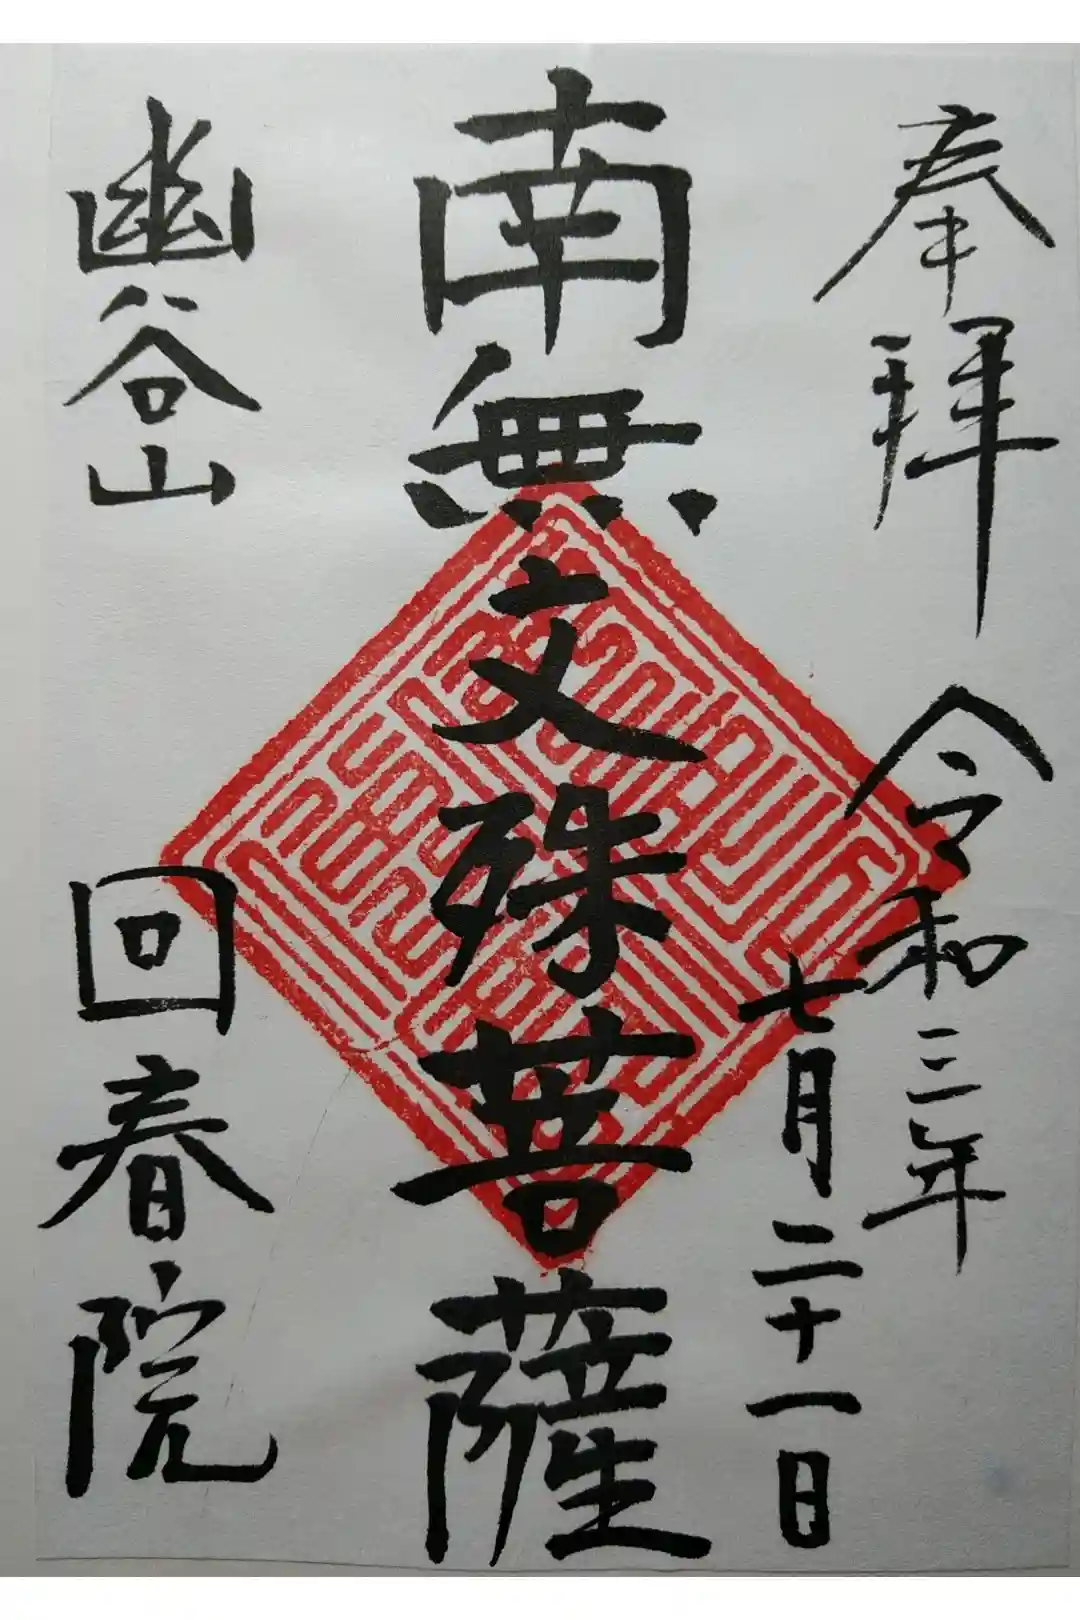 奉拝
令和三年
七月二十一日
南無文殊菩薩
幽谷山
回春院